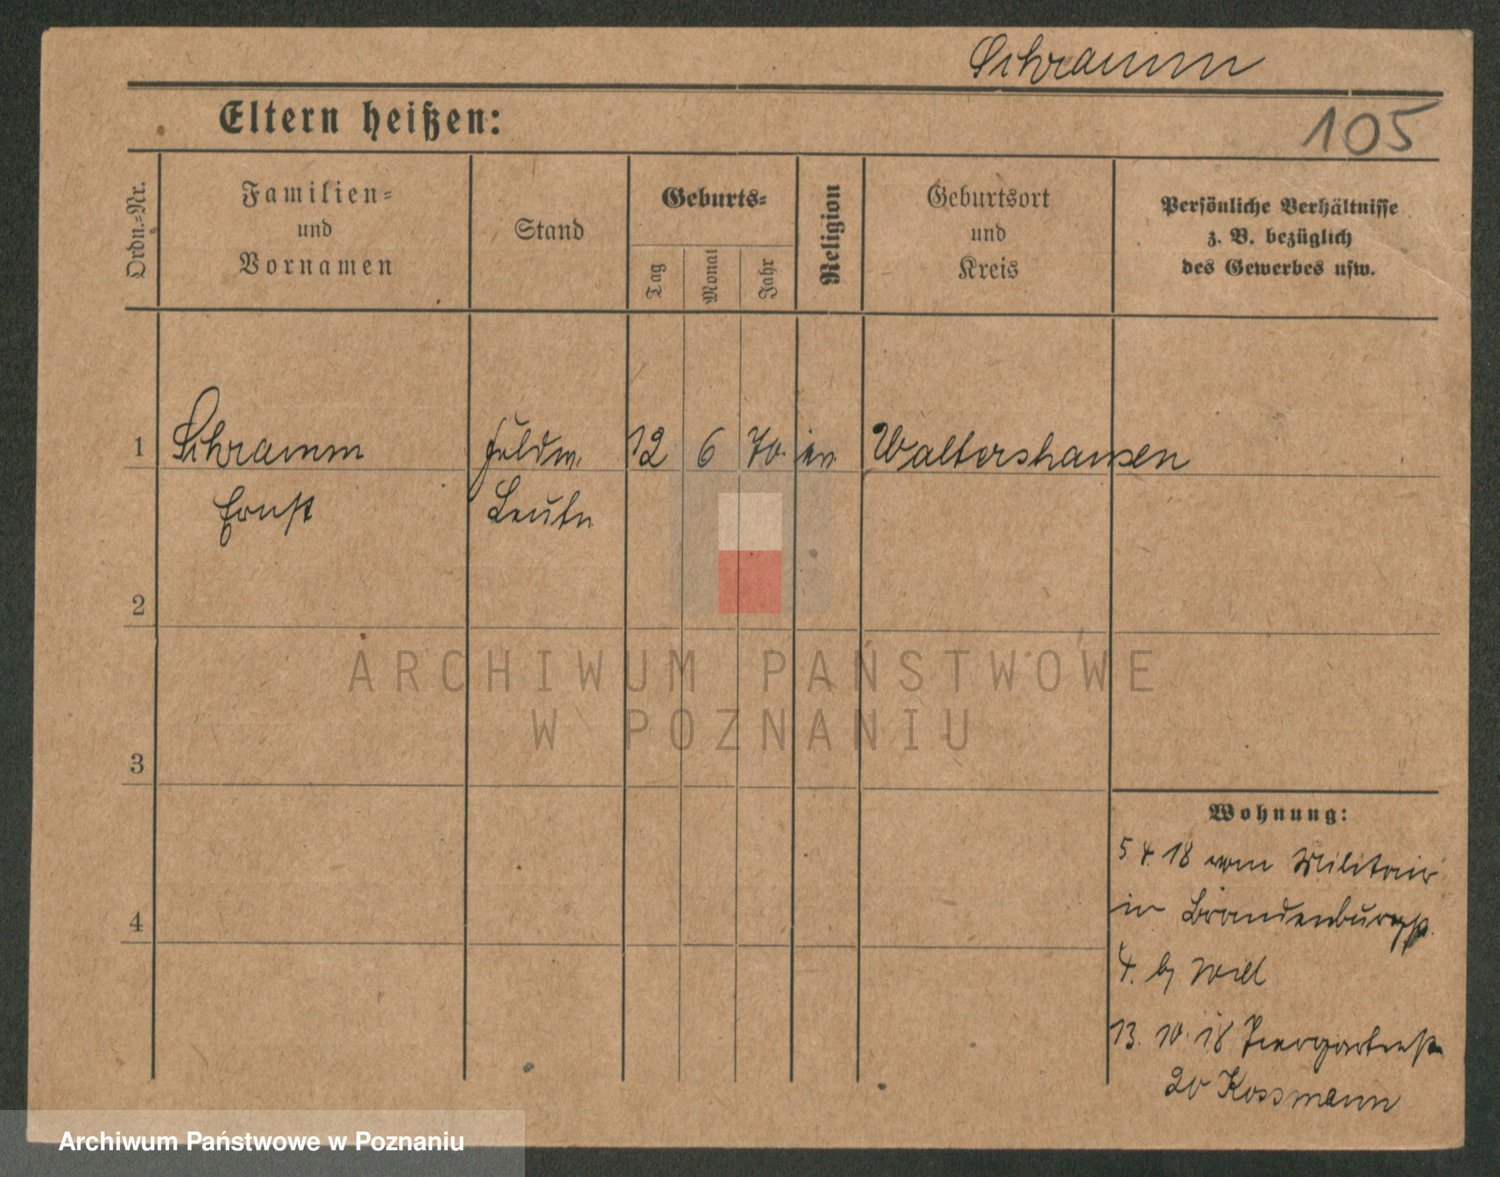 Schramm
105
Eltern heißen:
Ordn.-Nr.
Familien-
und
Vornamen
Stand
Geburts-
Tag
Monat
Jahr
Religion
Geburtsort
und
Kreis
Persönliche Verhältnisse
z. B. bezüglich
des Gewerbes usw.
1 Schramm Feldw. 12 6 70. ev Waltershausen
Ernst Leutn
2
3
4
ARCHIWUM PAŃSTWOWE
W POZNANIU
Wohnung:
5 4. 18 vom Militair
in Brandenburgst.
4. b Will
13. 10. 18 Tiergartenst
20 Kossmann
Archiwum Państwowe w Poznaniu